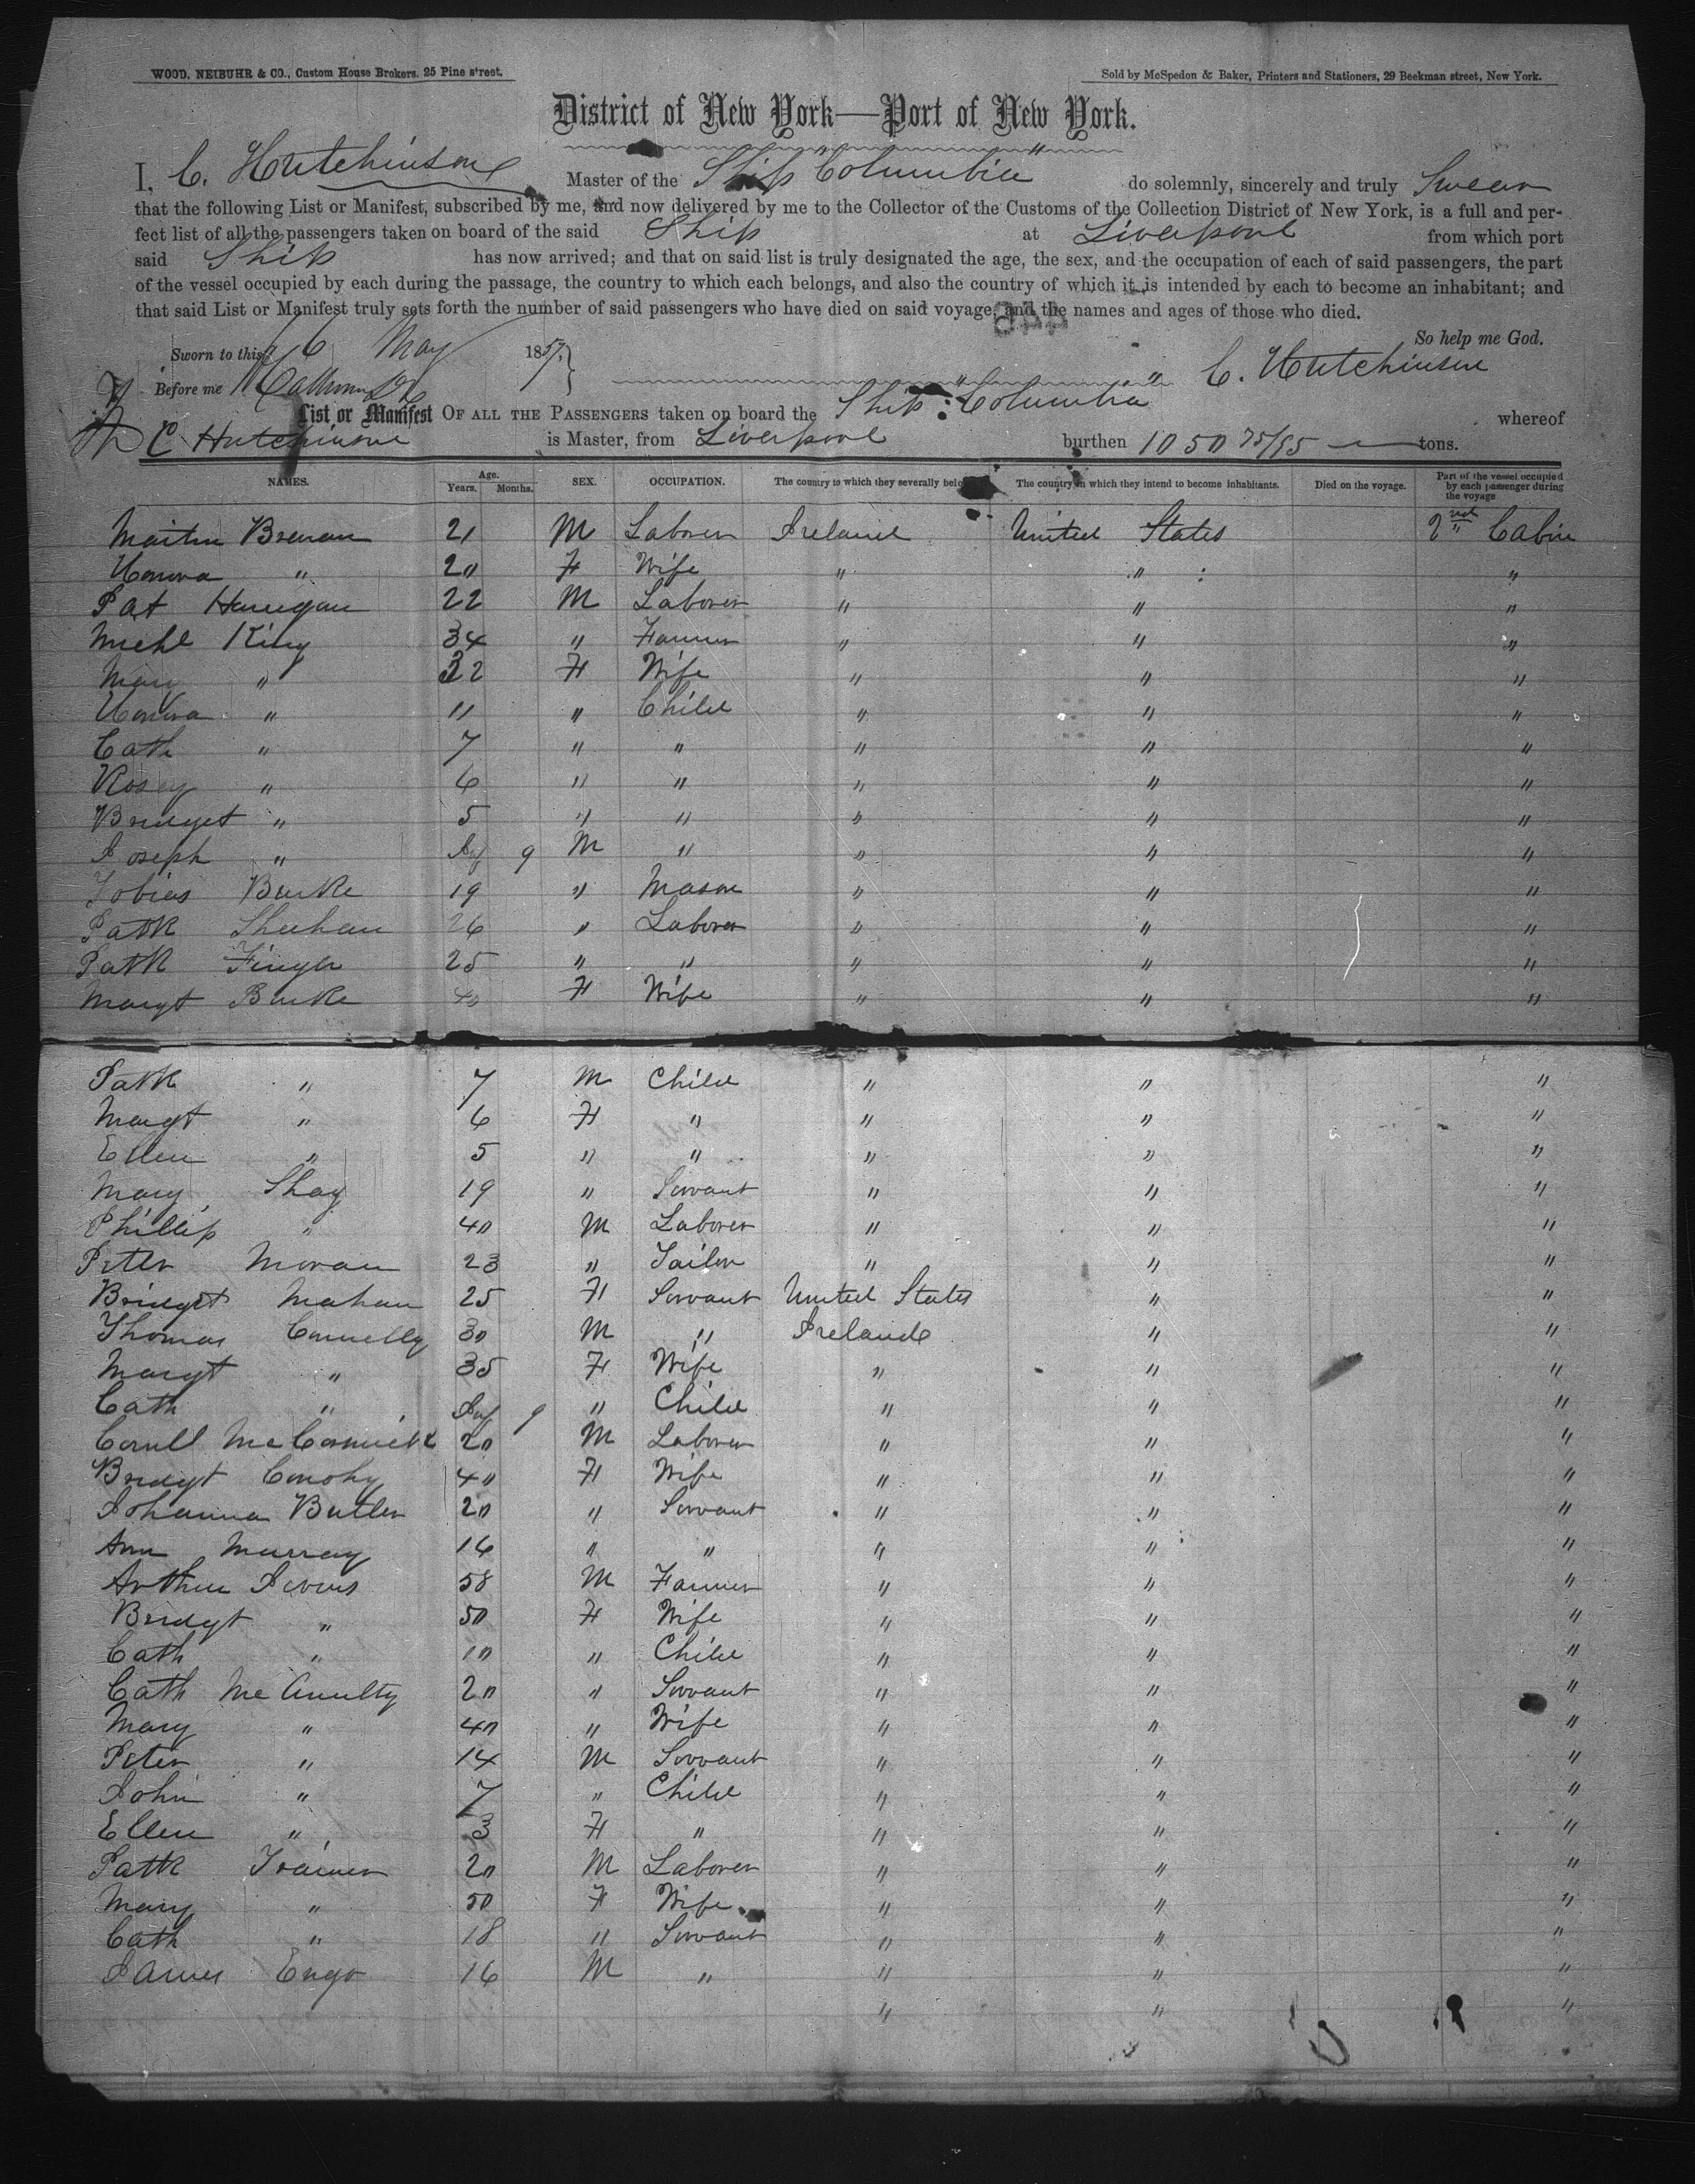 WOOD, NEIBUHR & CO., Custom House Brokers. 25 Pine street.
Sold by McSpedon & Baker, Printers and Stationers, 29 Beekman street, New York.
District of New York—Port of New York.
I, C. Hutchinson Master of the Ship "Columbia" do solemnly, sincerely and truly Swear
that the following List or Manifest, subscribed by me, and now delivered by me to the Collector of the Customs of the Collection District of New York, is a full and per-
fect list of all the passengers taken on board of the said Ship at Liverpool from which port
said Ship has now arrived; and that on said list is truly designated the age, the sex, and the occupation of each of said passengers, the part
of the vessel occupied by each during the passage, the country to which each belongs, and also the country of which it is intended by each to become an inhabitant; and
that said List or Manifest truly sets forth the number of said passengers who have died on said voyage, and the names and ages of those who died.
So help me God.
Sworn to this 16 May 1857
C. Hutchinson
Before me
List or Manifest OF ALL THE PASSENGERS taken on board the Ship "Columbia" whereof
C Hutchinson is Master, from Liverpool burthen 1050 75/95 tons.
NAMES. Age. Years. Months. SEX. OCCUPATION. The country to which they severally belong. The country in which they intend to become inhabitants. Died on the voyage. Part of the vessel occupied by each passenger during the voyage
Martin Brenan 21 M Laborer Ireland United States 2nd Cabin
Honora " 20 F Wife " " "
Pat Hanigan 22 M Laborer " " "
Michl King 34 " Farmer " " "
Mary " 32 F Wife " " "
Honora " 11 " Child " " "
Cath " 7 " " " " "
Rosey " 6 " " " " "
Bridget " 5 " " " " "
Joseph " Inf 9 M " " " "
Tobias Burke 19 " Mason " " "
Patk Sheehan 26 " Laborer " " "
Patk 25 " " " " "
Margt Burke 40 F Wife " " "
Patk " 7 M Child " " "
Margt " 6 F " " " "
Ellen " 5 " " " " "
Mary Shay 19 " Servant " " "
Phillip " 40 M Laborer " " "
Peter Moran 23 " Tailor " " "
Bridget Mahan 25 F Servant United States " "
Thomas Connelly 30 M " Ireland " "
Margt " 35 F Wife " " "
Cath " Inf 9 " Child " " "
McCormick 20 M Laborer " " "
Bridgt Conohy 40 F Wife " " "
Johanna Butler 20 " Servant " " "
Ann Murray 16 " " " " "
Arthur 58 M Farmer " " "
Bridgt " 50 F Wife " " "
Cath " 10 " Child " " "
Cath McAnulty 20 " Servant " " "
Mary " 40 " Wife " " "
Peter " 14 M Servant " " "
John " 7 " Child " " "
Ellen " 3 F " " " "
Patk Trainer 20 M Laborer " " "
Mary " 50 F Wife " " "
Cath " 18 " Servant " " "
James 16 M " " " "
" " "